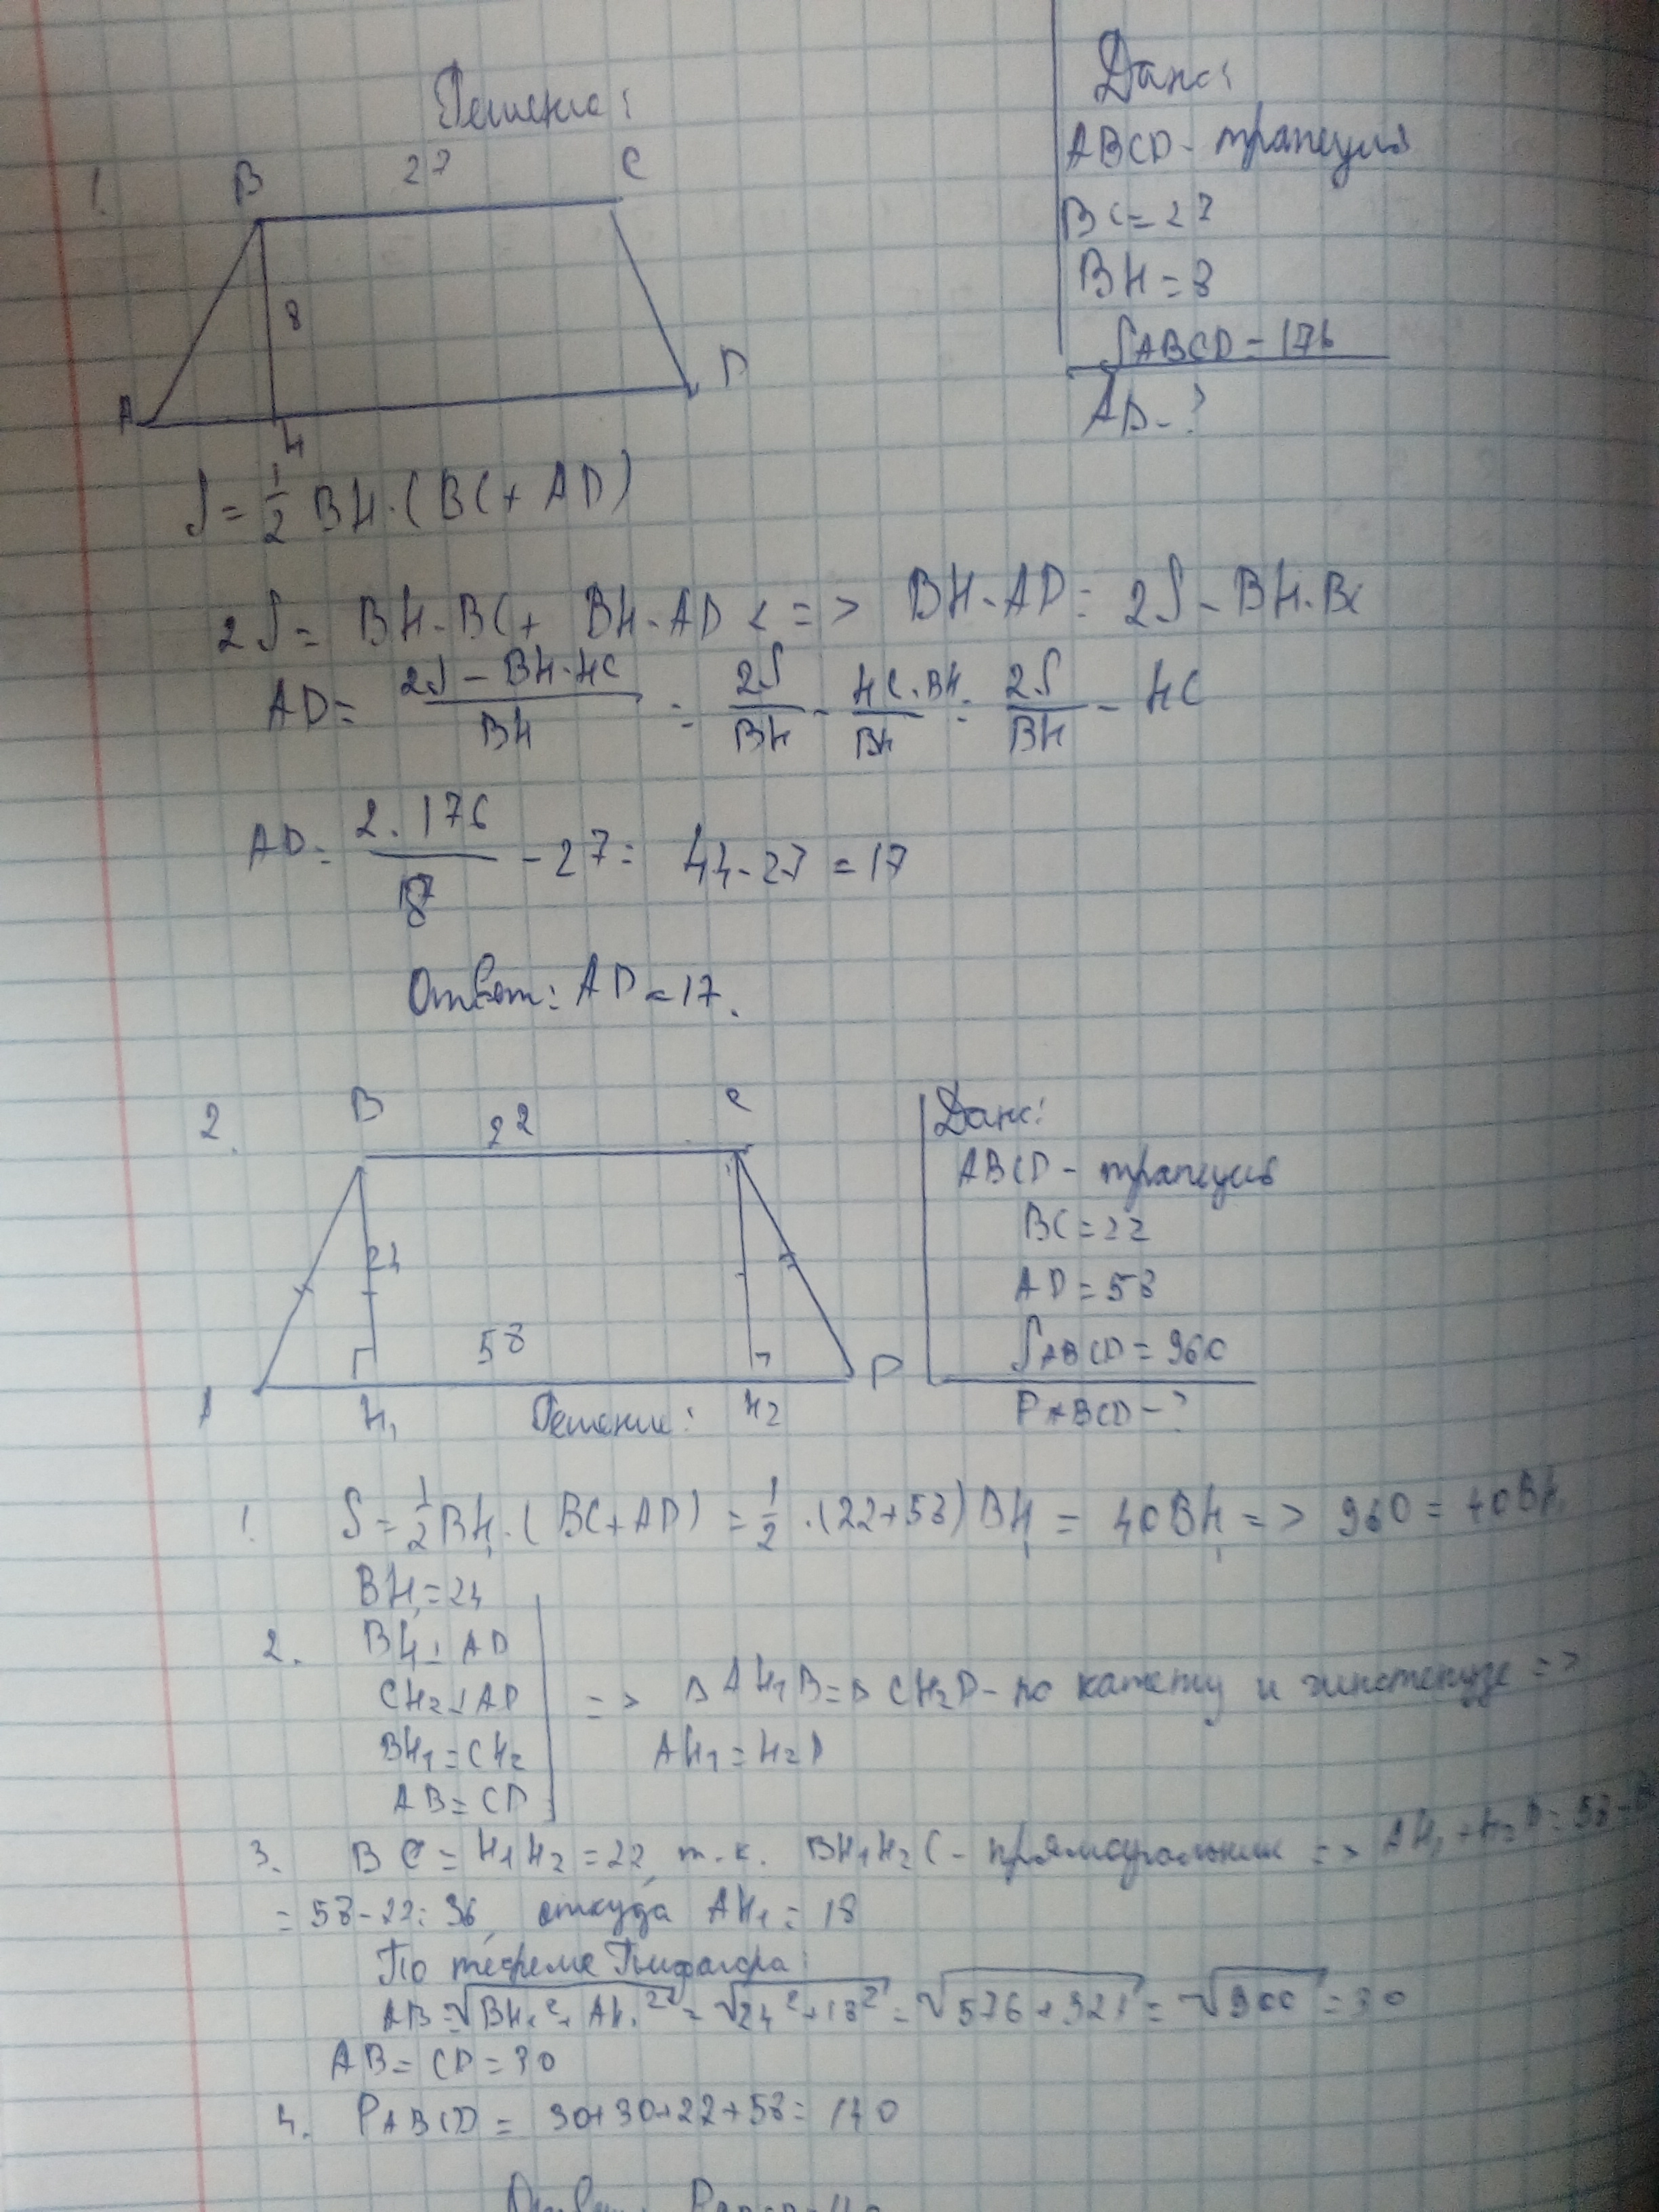 Решение:
Дано:
ABCD - трапеция
BC = 27
BH = 8
SABCD = 176
AD - ?
1.
B 27 C
8
A H D
S = 1/2 BH · (BC + AD)
2S = BH · BC + BH · AD <=> BH · AD = 2S - BH · BC
AD = (2S - BH · HC)/BH = 2S/BH - HC · BH/BH = 2S/BH - HC
AD = 2 · 176/8 - 27 = 44 - 27 = 17
Ответ: AD = 17.
2.
B 22 C
24
58
A H₁ H₂ D
Дано:
ABCD - трапеция
BC = 22
AD = 58
SABCD = 960
PABCD - ?
Решение:
1. S = 1/2 BH₁ · (BC + AD) = 1/2 · (22 + 58) BH₁ = 40BH₁ => 960 = 40BH₁
BH₁ = 24
2. BH₁ ⊥ AD
CH₂ ⊥ AD
BH₁ = CH₂
AB = CD
=> △AH₁B = △CH₂D - по катету и гипотенузе =>
AH₁ = H₂D
3. BC = H₁H₂ = 22, т.к. BH₁H₂C - прямоугольник => AH₁ + H₂D = 58 -
= 58 - 22 = 36, откуда AH₁ = 18
По теореме Пифагора:
AB = √BH₁² + AH₁² = √24² + 18² = √576 + 324 = √900 = 30
AB = CD = 30
4. PABCD = 30 + 30 + 22 + 58 = 140
Ответ: